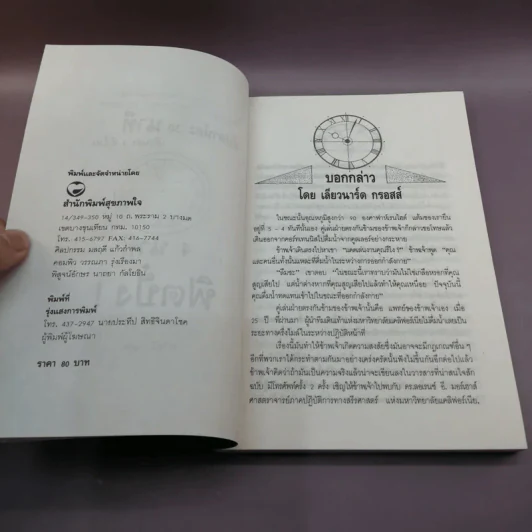 พิมพ์และจัดจำหน่ายโดย
สำนักพิมพ์สุขภาพใจ
14/349-350 หมู่ 10 ถ. พระราม 2 บางมด
เขตบางขุนเทียน กทม. 10150
โทร. 415-6797 FAX: 416-7744
ศิลปกรรม มลฤดี แก้วกำพล
คอมพิว วรรณภา รุ่งเรืองมา
พิสูจน์อักษร นาถยา กัลโยธิน
พิมพ์ที่
รุ่งแสงการพิมพ์
โทร. 437-2942 นายประทีป สิทธิจินดาโชค
ผู้พิมพ์ผู้โฆษณา
ราคา 80 บาท
บอกกล่าว
โดย เลียวนาร์ด กรอสส์
ในขณะนั้นอุณหภูมิสูงกว่า 90 องศาฟาห์เรนไฮต์ แต้มของเรายืน
อยู่ที่ 5 - 4 ทันทีนั้นเอง คู่เล่นฝ่ายตรงกันข้ามของข้าพเจ้าก็กล่าวขอโทษแล้ว
เดินออกจากคอร์ทเทนนิสไปดื่มน้ำจากคูลเลอร์อย่างกระหาย
ข้าพเจ้าเดินตรงไปหาเขา "เคตเล่นงานคุณรึไง?" ข้าพเจ้าพูด "คุณ
และคนอื่นทั้งนั้นแหละที่ดื่มน้ำในระหว่างการออกกำลังกาย"
"ดื่มซะ" เขาตอบ "ในขณะนี้เราทราบว่ามันไม่ใช่เกลือหรอกที่คุณ
สูญเสียไป แต่น้ำต่างหากที่คุณสูญเสียไปแล้วทำให้คุณเหนื่อย ปัจจุบันนี้
คุณดื่มน้ำทดแทนเข้าไปในขณะที่ออกกำลังกาย"
คู่เล่นฝ่ายตรงกันข้ามของข้าพเจ้านั้นคือ แพทย์ของข้าพเจ้าเอง เมื่อ
15 ปี ที่ผ่านมา ผู้นำทีมเดินเท้าแห่งมหาวิทยาลัยแคลิฟอร์เนียไม่ดื่มน้ำเลยเป็น
ระยะทางครึ่งไมล์ในระหว่างปฏิบัติหน้าที่
เรื่องนี้มันทำให้ข้าพเจ้าเกิดความสงสัยขึ้นมันอาจจะมีกฎเกณฑ์อื่น ๆ
อีกที่พวกเราได้กระทำตามกันมาอย่างเคร่งครัดนั้นฟังไม่ขึ้นกันอีกต่อไปแล้ว
ข้าพเจ้าคิดว่าถ้ามันเป็นความจริงแล้วน่าจะเขียนลงในวารสารที่น่าสนใจสัก
ฉบับ มีโทรศัพท์ครั้ง 2 ครั้ง เชิญให้ข้าพเจ้าไปพบกับ ดร.ลอเรนซ์ อี. มอร์เฮาส์
ศาสตราจารย์ภาคปฏิบัติการทางสรีรศาสตร์ แห่งมหาวิทยาลัยแคลิฟอร์เนีย,